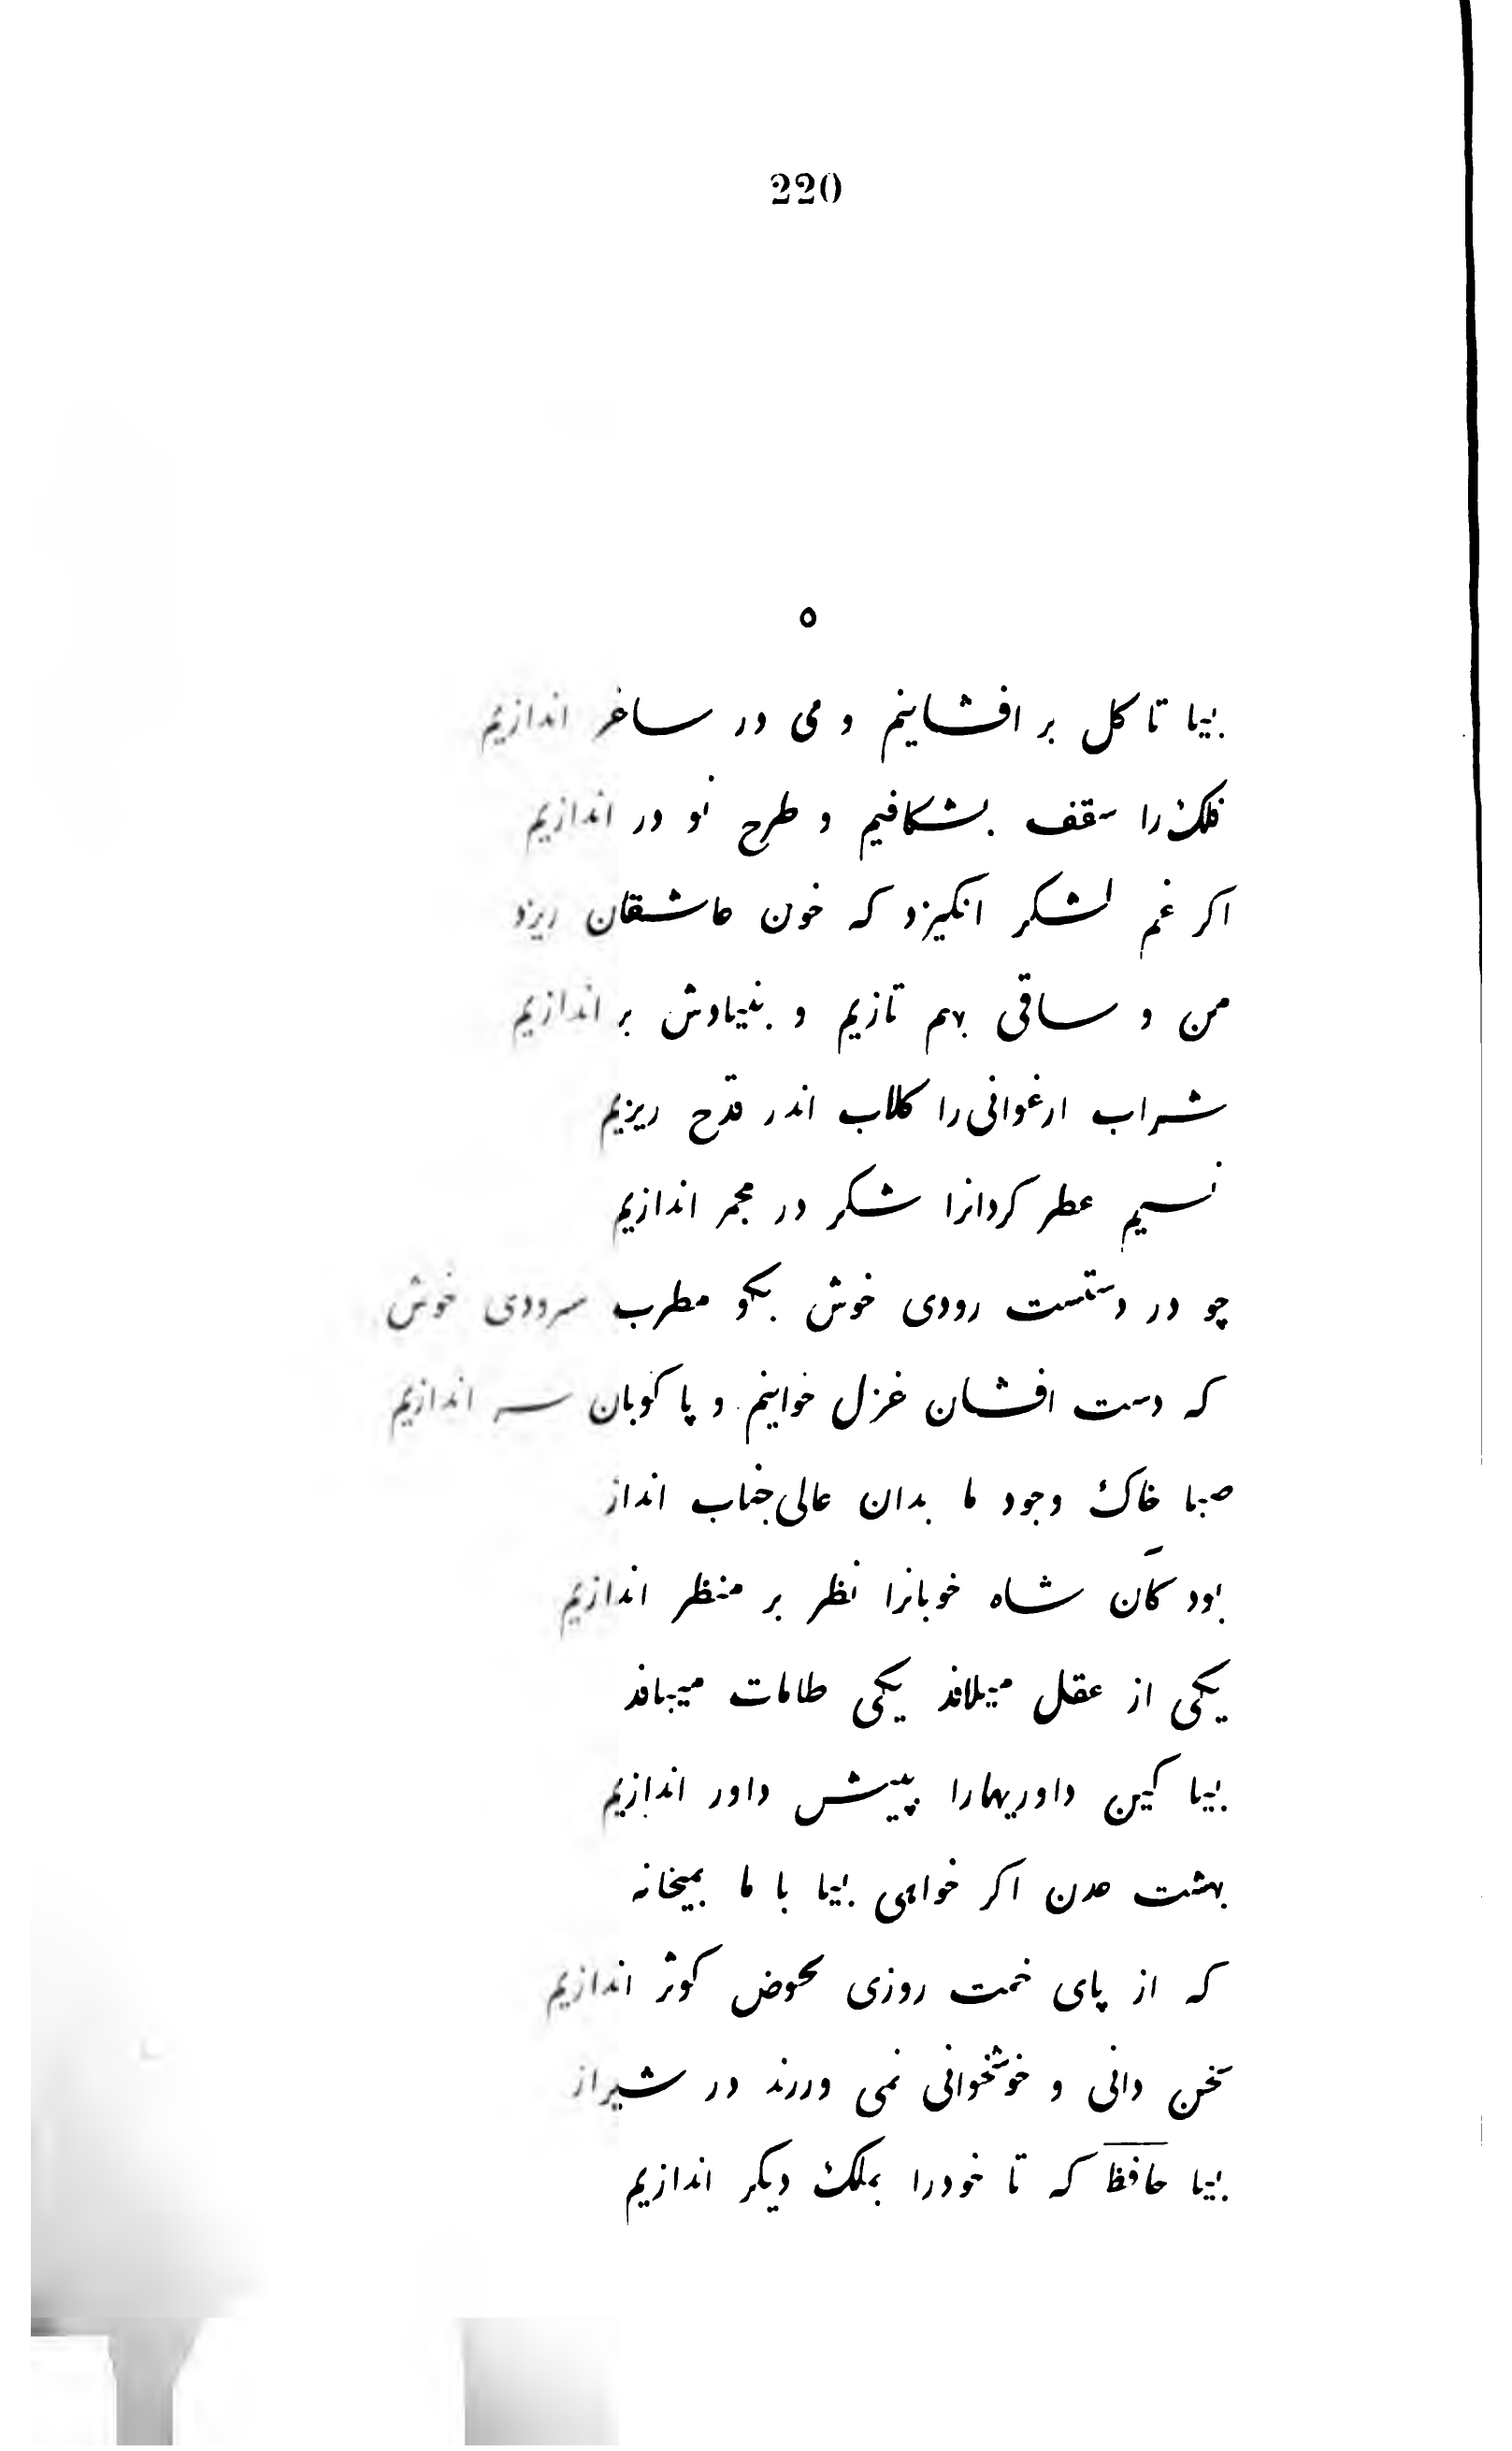 220
٥
بیا تا کل بر افشانیم و می در ساغر اندازیم
فلک را سقف بشکافیم و طرح نو در اندازیم
اکر غم لشکر انکیزد که خون عاشقان ریزد
من و ساقی بهم تازیم و بنیادش بر اندازیم
شراب ارغوانی را کلاب اندر قدح ریزیم
نسیم عطر کردانرا شکر در مجمر اندازیم
چو در دستست رودی خوش بکو مطرب سرودی خوش
که دست افشان غزل خوانیم و پا کوبان سر اندازیم
صبا خاک وجود ما بدان عالی جناب انداز
بود کان شاه خوبانرا نظر بر منظر اندازیم
یکی از عقل میلافد یکی طامات میبافد
بیا کین داوریهارا پیش داور اندازیم
بهشت عدن اکر خواهی بیا با ما بمیخانه
که از پای خمت روزی بحوض کوثر اندازیم
سخن دانی و خوشخوانی نمی ورزند در شیراز
بیا حافظ که تا خودرا بملک دیکر اندازیم